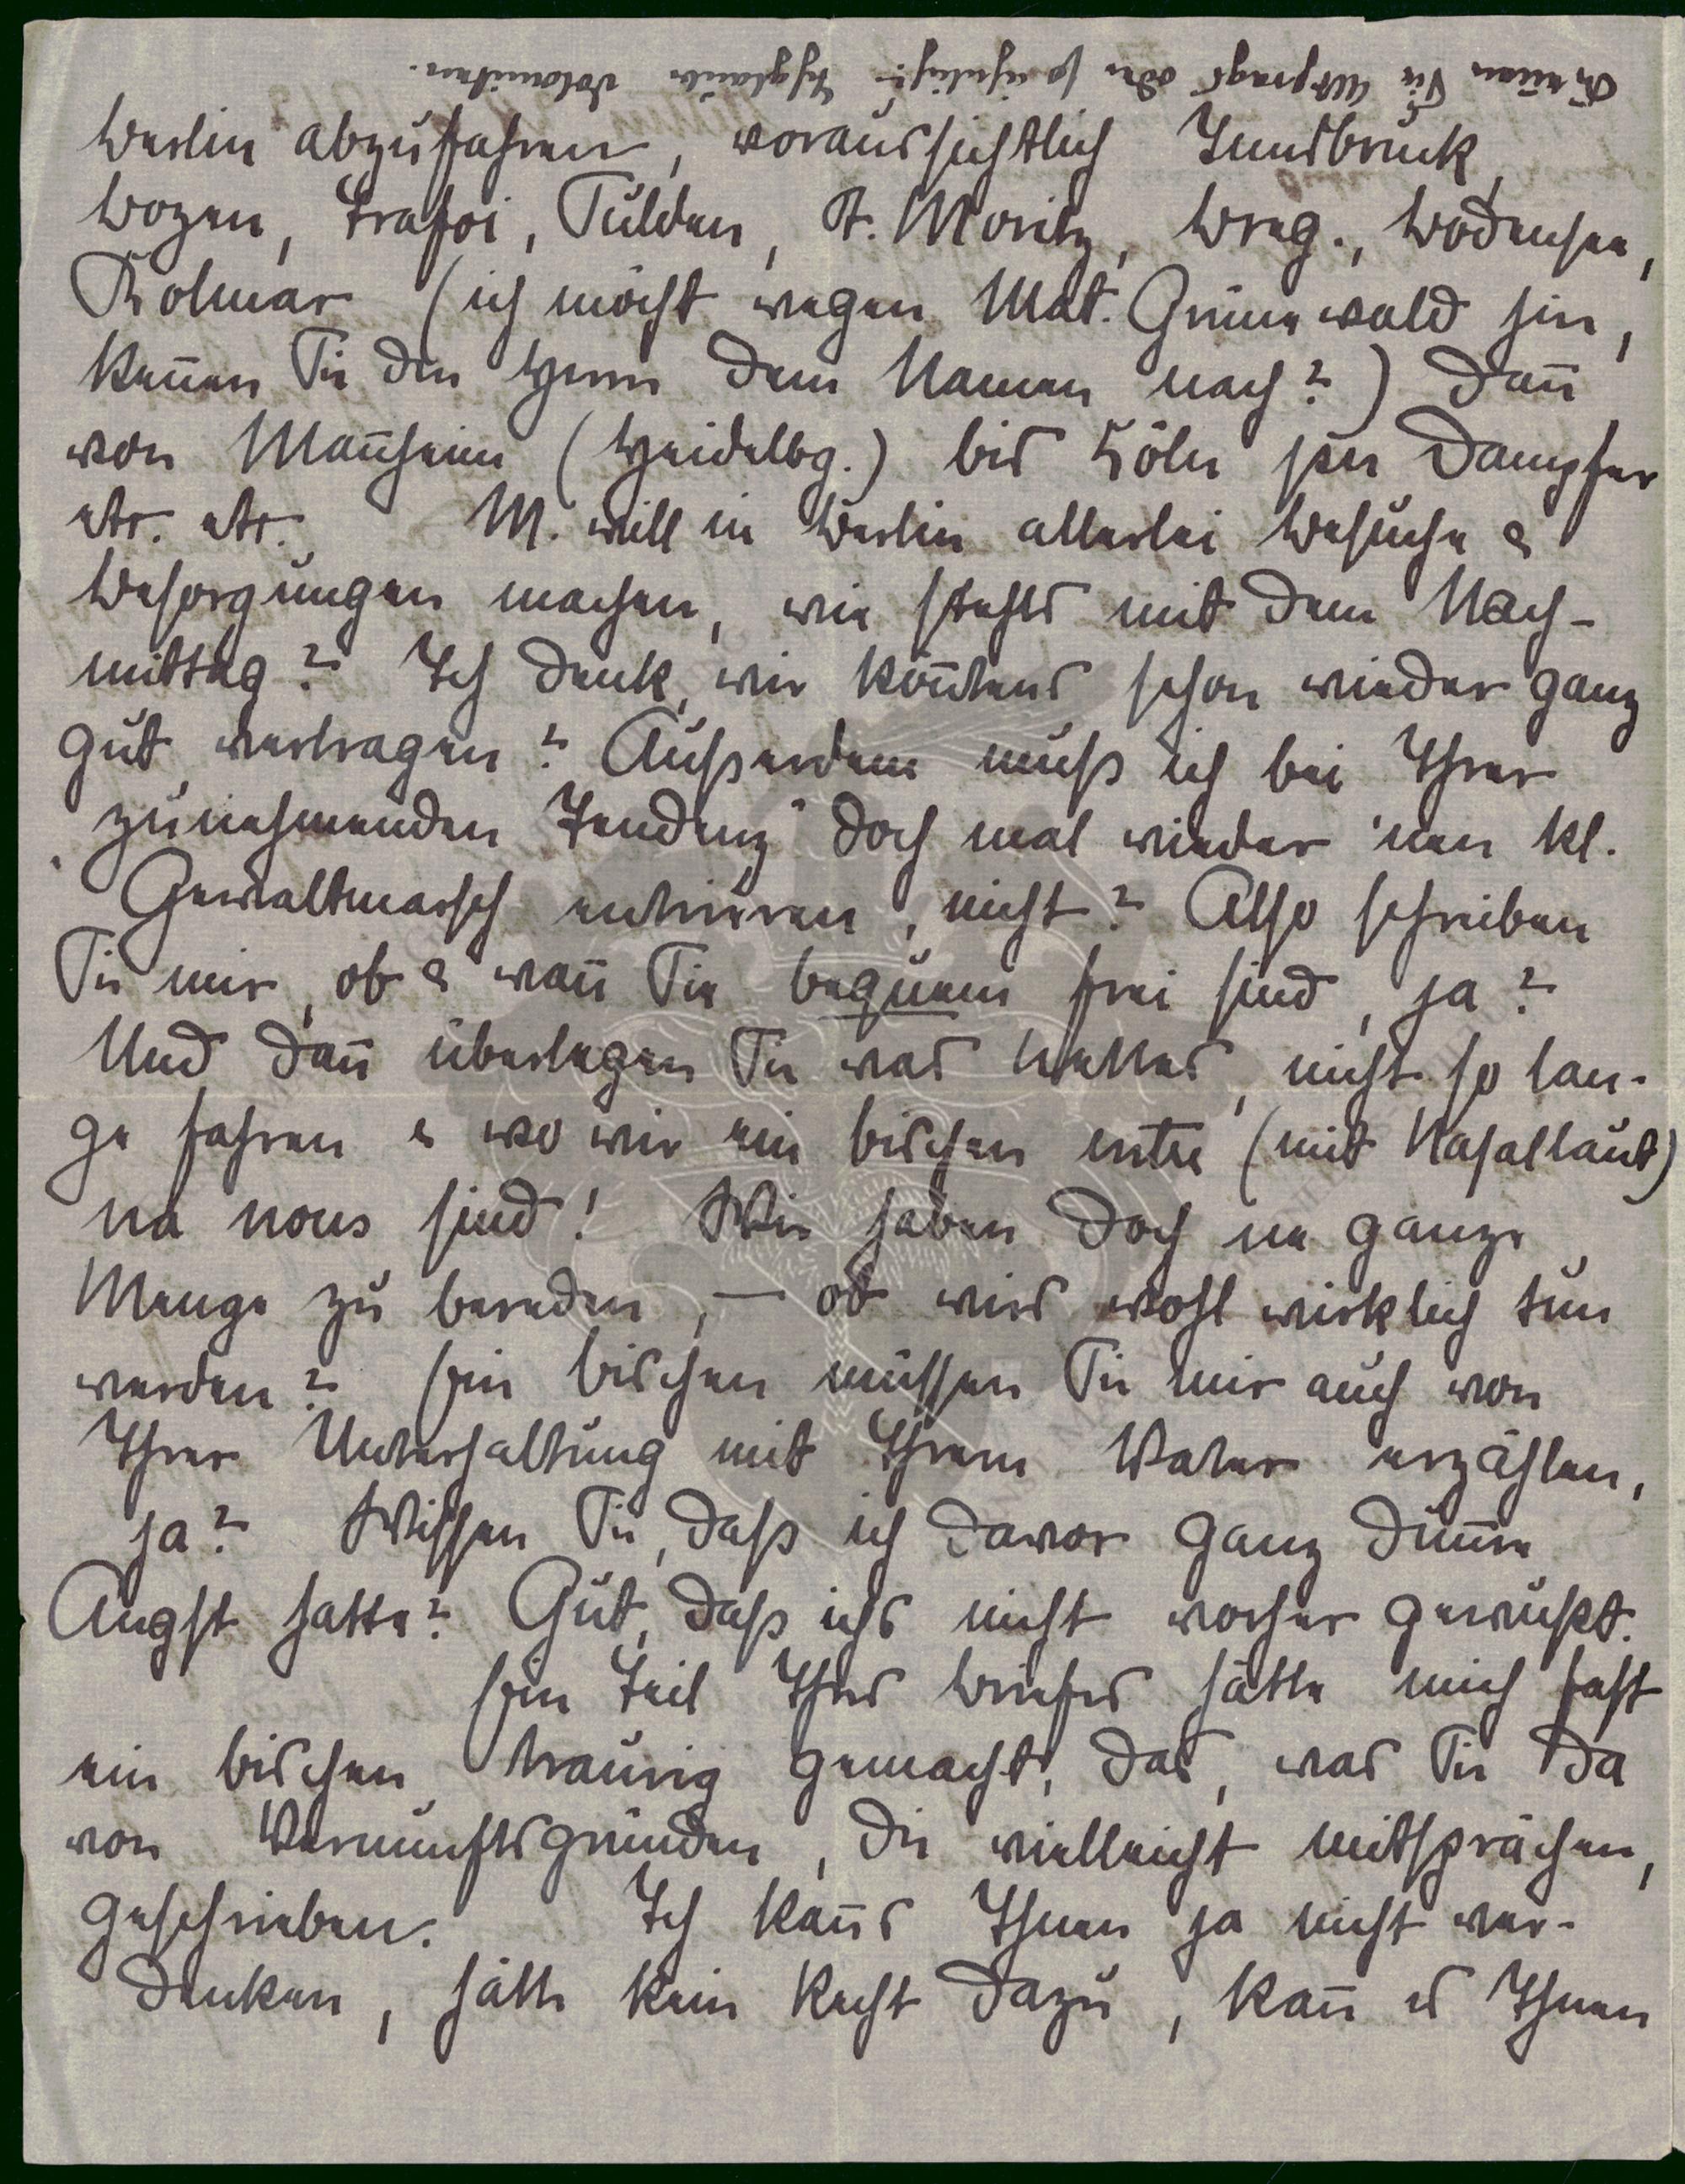 Berlin abzufahren, voraussichtlich Innsbruck,
Bozen, Trafoi, Sulden, St. Moritz, Breg., Bodensee,
Kolmar (ich möcht wegen Mat. Grünewald hin,
Keñen Sie den Herrn dem Namen nach?) dañ
von Mañheim (Heidelbg.) bis Köln per Dampfer
etc. etc. M. will in Berlin allerlei Besuche &
Besorgungen machen, wie stehts mit dem Nach-
mittag? Ich denk, wir köñtens schon wieder ganz
gut vertragen? Außerdem muß ich bei Ihrer
"zunehmenden Tendenz" doch mal wieder 'nen kl.
Gewaltmarsch entrieren, nicht? Also schreiben
Sie mir, ob & wañ Sie bequem frei sind, ja?
Und dañ überlegen Sie was Nettes, nicht so lan-
ge fahren & wo wir ein bischen entre (mit Nasallaut)
na nous sind! Wir haben doch ne ganze
Menge zu bereden, — ob wirs wohl wirklich tun
werden? Ein bischen müssen Sie mir auch von
Ihrer Unterhaltung mit Ihrem Vater erzählen,
ja? Wissen Sie, daß ich davor ganz dum̄e
Angst hatte? Gut, daß ichs nicht vorher gewußt.
Ein Teil Ihres Briefes hätte mich fast
ein bischen traurig gemacht, das, was Sie da
von Vernunftsgründen, die vielleicht mitsprächen,
geschrieben. Ich kañs Ihnen ja nicht ver-
denken, hätte kein Recht dazu, kañ es Ihnen